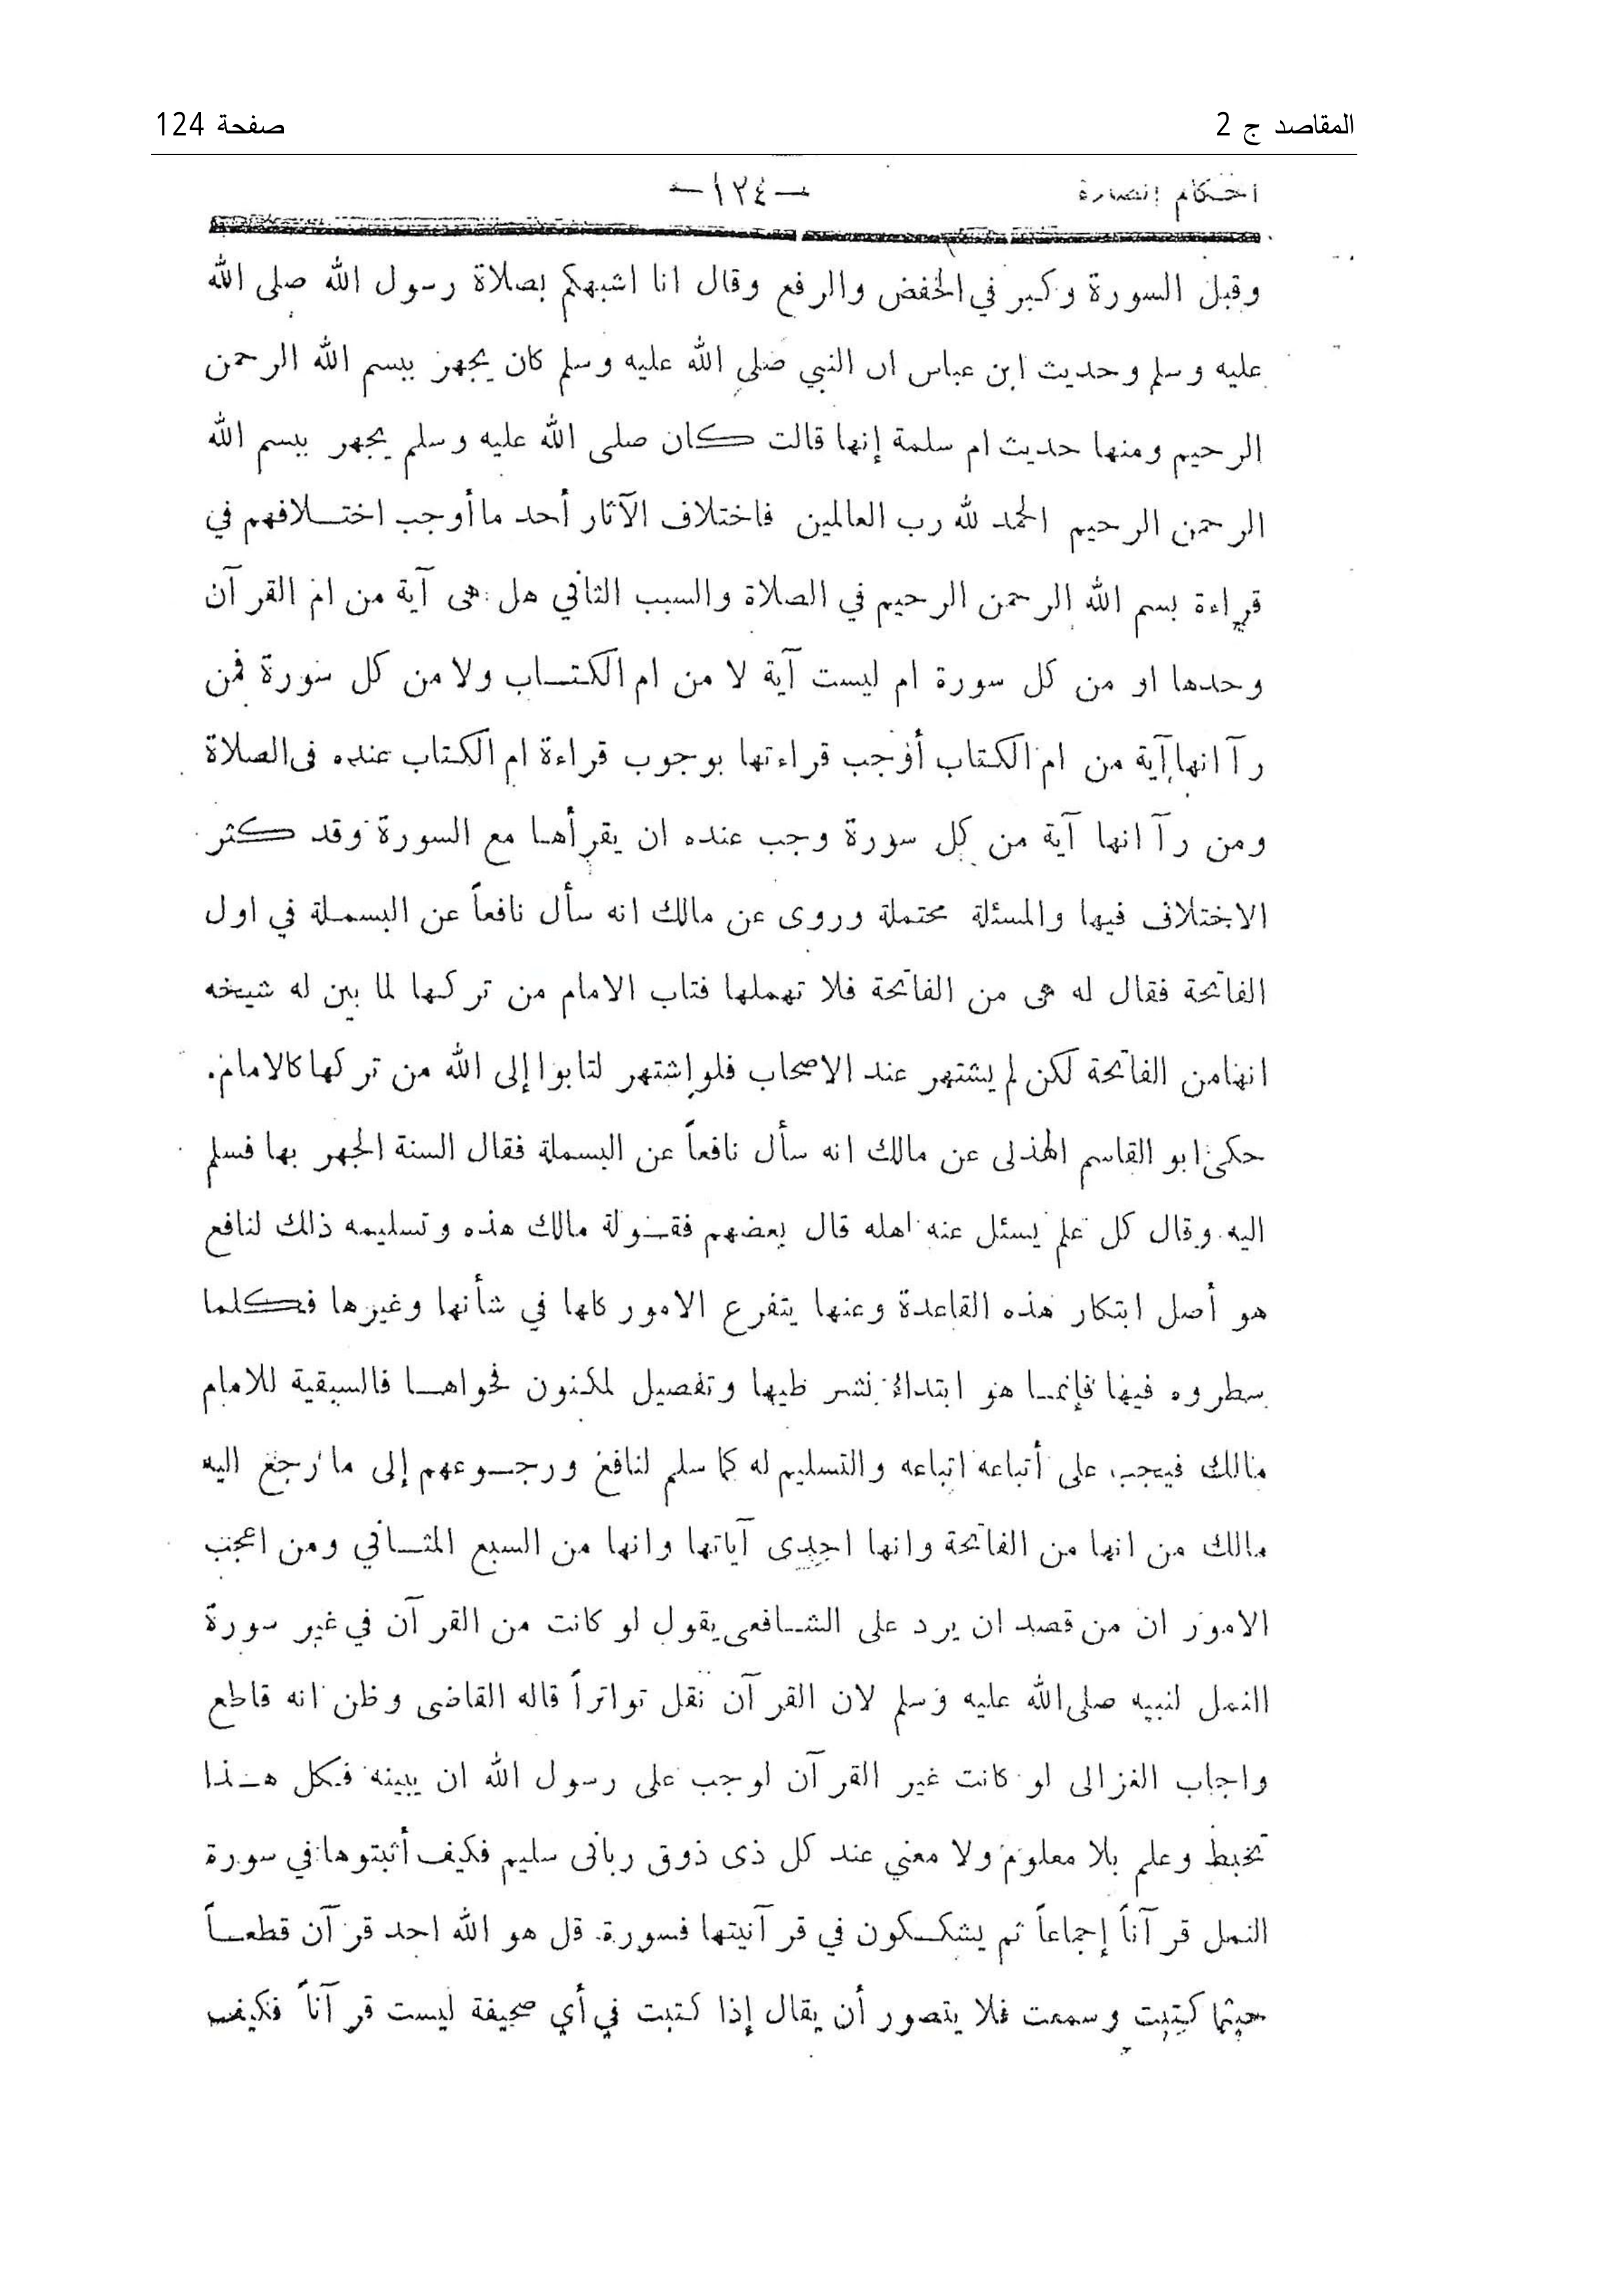 المقاصد ج 2
صفحة 124
أحكام الصلاة
— ١٢٤ —
وقبل السورة وكبر في الخفض والرفع وقال انا اشبهكم بصلاة رسول الله صلى الله
عليه وسلم وحديث ابن عباس ان النبي صلى الله عليه وسلم كان يجهر ببسم الله الرحمن
الرحيم ومنها حديث ام سلمة إنها قالت كان صلى الله عليه وسلم يجهر ببسم الله
الرحمن الرحيم الحمد لله رب العالمين فاختلاف الآثار أحد ما أوجب اختلافهم في
قراءة بسم الله الرحمن الرحيم في الصلاة والسبب الثاني هل هى آية من ام القرآن
وحدها او من كل سورة ام ليست آية لا من ام الكتاب ولا من كل سورة فمن
رآ انها آية من ام الكتاب أوجب قراءتها بوجوب قراءة ام الكتاب عنده فى الصلاة
ومن رآ انها آية من كل سورة وجب عنده ان يقرأها مع السورة وقد كثر
الاختلاف فيها والمسئلة محتملة وروى عن مالك انه سأل نافعاً عن البسملة في اول
الفاتحة فقال له هى من الفاتحة فلا تهملها فتاب الامام من تركها لما بين له شيخه
انها من الفاتحة لكن لم يشتهر عند الاصحاب فلو اشتهر لتابوا إلى الله من تركها كالامام.
حكى ابو القاسم الهذلى عن مالك انه سأل نافعاً عن البسملة فقال السنة الجهر بها فسلم
اليه وقال كل علم يسئل عنه اهله قال بعضهم فقولة مالك هذه وتسليمه ذلك لنافع
هو أصل ابتكار هذه القاعدة وعنها يتفرع الامور كلها في شأنها وغيرها فكلما
سطروه فيها فإنما هو ابتداء نشر طيها وتفصيل لمكنون فحواها فالسبقية للامام
مالك فيجب على أتباعه اتباعه والتسليم له كما سلم لنافع ورجوعهم إلى ما رجع اليه
مالك من انها من الفاتحة وانها احدى آياتها وانها من السبع المثاني ومن اعجب
الامور ان من قصد ان يرد على الشافعى يقول لو كانت من القرآن في غير سورة
النمل لنبيه صلى الله عليه وسلم لان القرآن نقل تواتراً قاله القاضى وظن انه قاطع
واجاب الغزالى لو كانت غير القرآن لوجب على رسول الله ان يبينه فكل هذا
تخبط وعلم بلا معلوم ولا معني عند كل ذى ذوق ربانى سليم فكيف أثبتوها في سورة
النمل قرآناً إجماعاً ثم يشككون في قرآنيتها فسورة قل هو الله احد قرآن قطعاً
حيثما كتبت وسمعت فلا يتصور أن يقال إذا كتبت في أي صحيفة ليست قرآناً فكيف